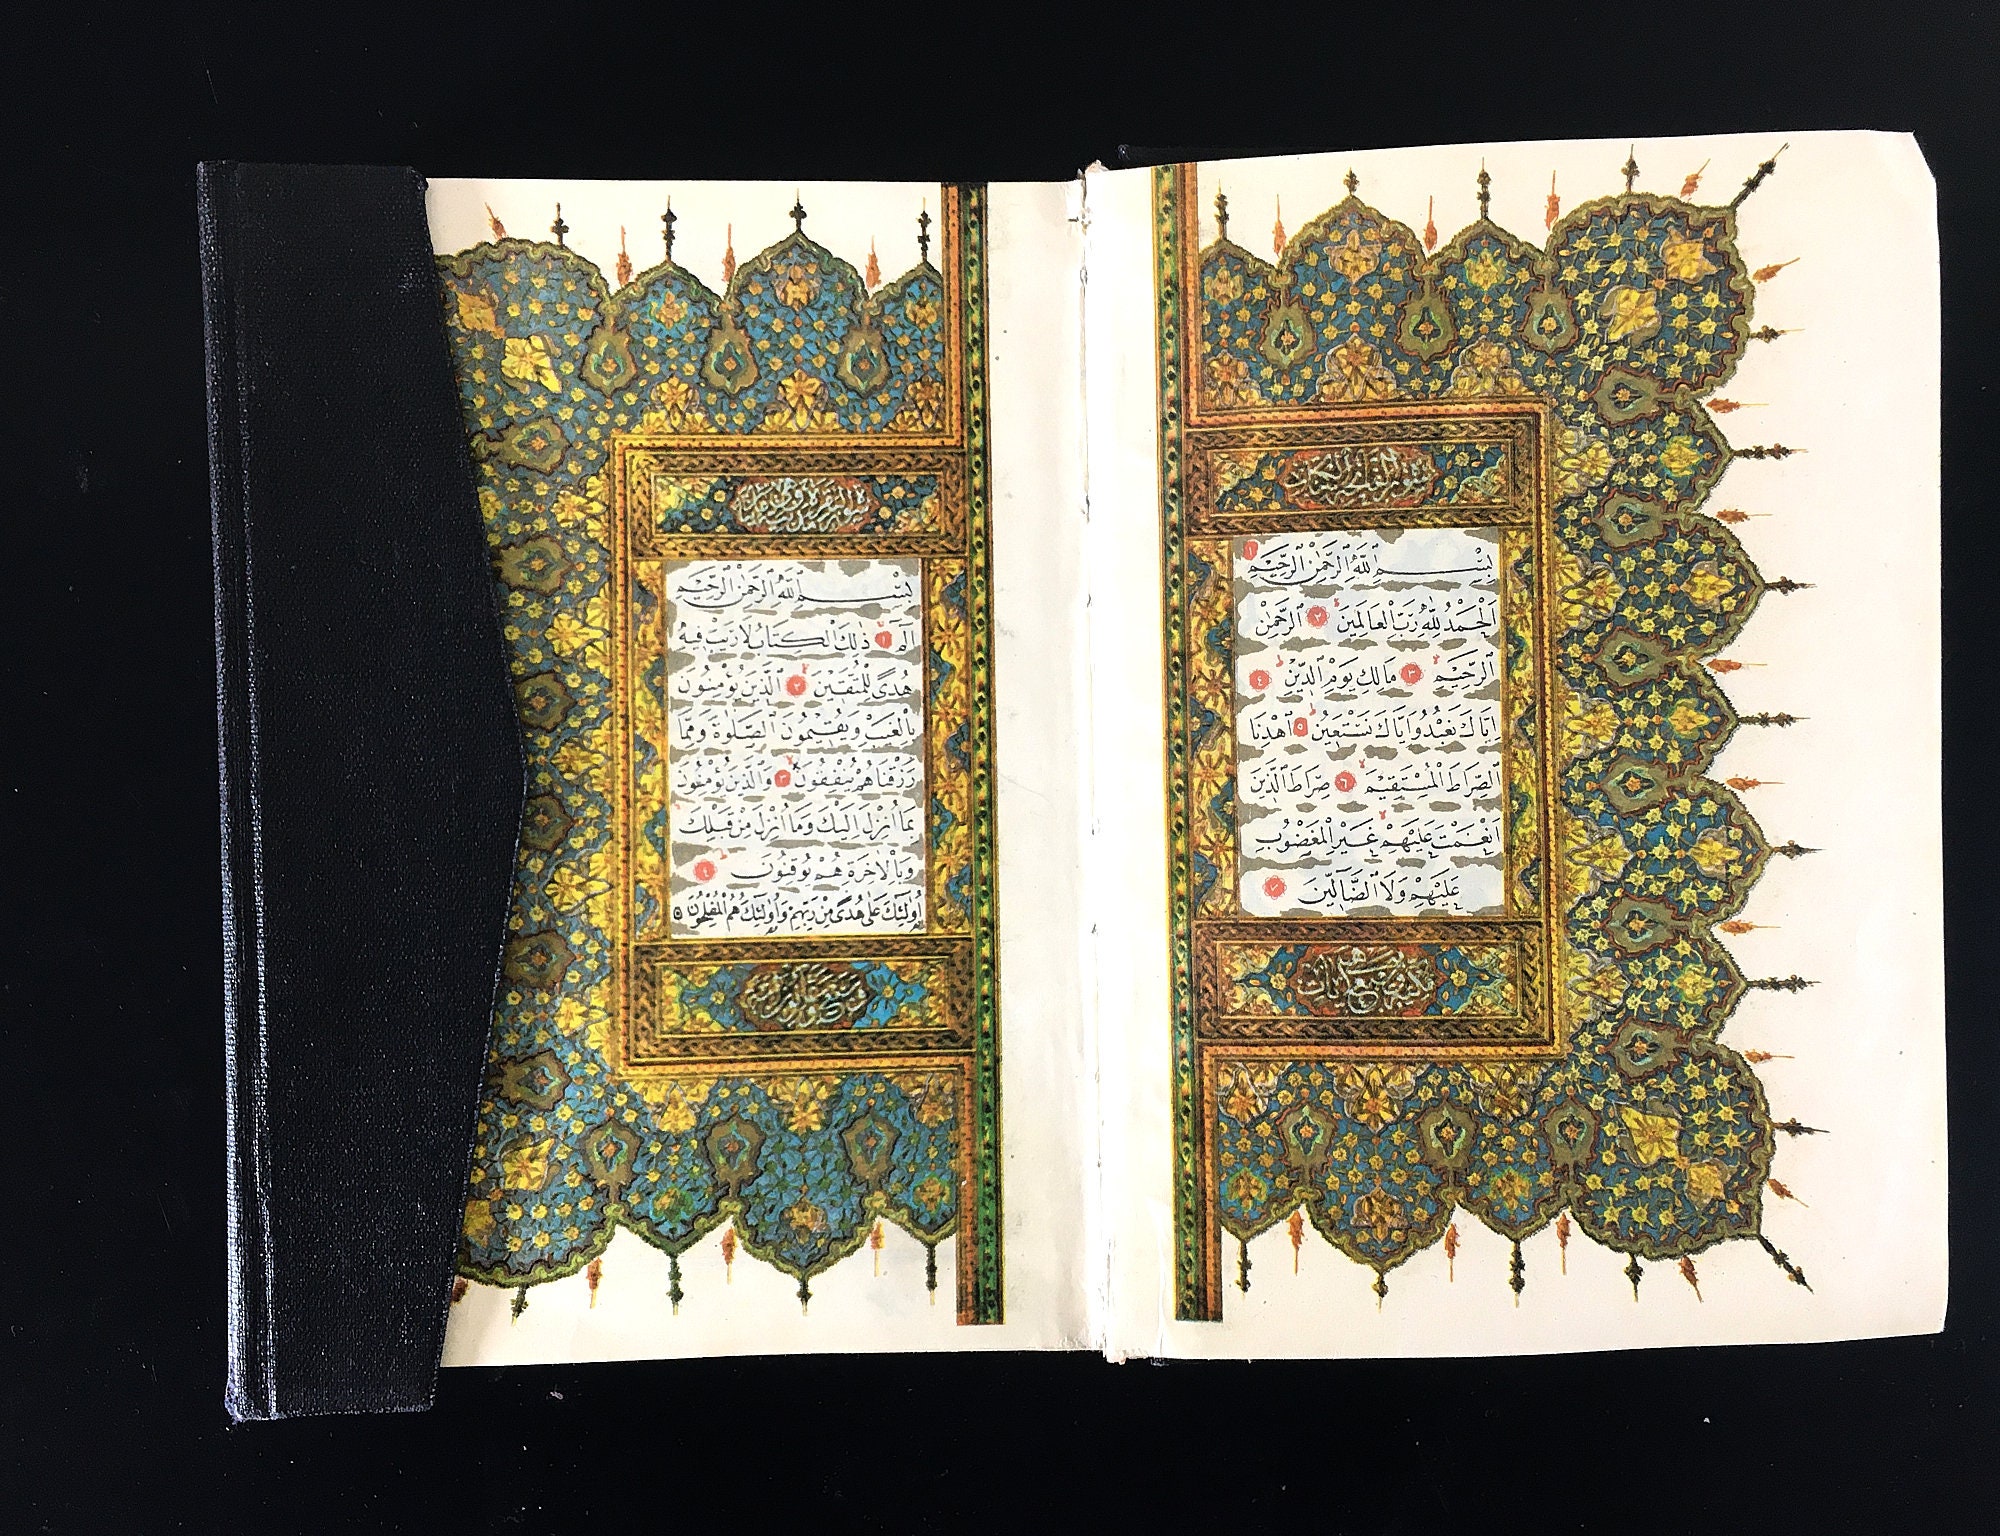 سورة الفاتحة
بِسْمِ ٱللّٰهِ ٱلرَّحْمٰنِ ٱلرَّحِيمِ ١
اَلْحَمْدُ لِلّٰهِ رَبِّ الْعَالَمِينَ ٢ اَلرَّحْمٰنِ
الرَّحِيمِ ٣ مَالِكِ يَوْمِ الدِّينِ ٤
اِيَّاكَ نَعْبُدُ وَاِيَّاكَ نَسْتَعِينُ ٥ اِهْدِنَا
الصِّرَاطَ الْمُسْتَقِيمَ ٦ صِرَاطَ الَّذِينَ
اَنْعَمْتَ عَلَيْهِمْ غَيْرِ الْمَغْضُوبِ
عَلَيْهِمْ وَلَا الضَّالِّينَ ٧
سبع آيات
سورة البقرة
بِسْمِ ٱللّٰهِ ٱلرَّحْمٰنِ ٱلرَّحِيمِ
الٓمٓ ١ ذٰلِكَ الْكِتَابُ لَا رَيْبَ فِيهِ
هُدًى لِلْمُتَّقِينَ ٢ اَلَّذِينَ يُؤْمِنُونَ
بِالْغَيْبِ وَيُقِيمُونَ الصَّلٰوةَ وَمِمَّا
رَزَقْنَاهُمْ يُنْفِقُونَ ٣ وَالَّذِينَ يُؤْمِنُونَ
بِمَا اُنْزِلَ اِلَيْكَ وَمَا اُنْزِلَ مِنْ قَبْلِكَ
وَبِالْاٰخِرَةِ هُمْ يُوقِنُونَ ٤
اُولٰٓئِكَ عَلٰى هُدًى مِنْ رَبِّهِمْ وَاُولٰٓئِكَ هُمُ الْمُفْلِحُونَ ٥